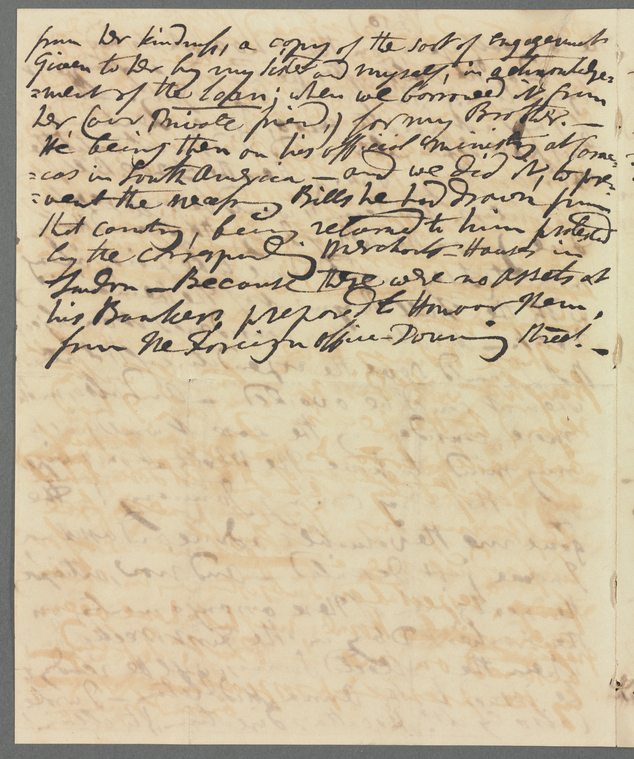 from her kindness, a copy of the sort of engagement
Given to her by my sister and myself, in acknowledge=
=ment of the loan; when we borrowed it from
her (our Private friend,) for my Brother. —
He being then on his official ministry at Carac=
=cas in South America — and we did it, to pre=
=vent the necessary Bills he had drawn from
that country, being returned to him protested
by the corresponding Merchants-Houses in
London — Because there were no assets at
his Bankers, prepared to Honour them,
from the Foreign office-Downing Street. —